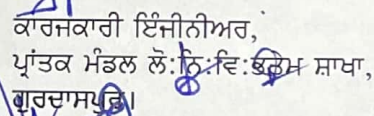 ਕਾਰਜਕਾਰੀ ਇੰਜੀਨੀਅਰ,
ਪ੍ਰਾਂਤਕ ਮੰਡਲ ਲੋ:ਨਿ:ਵਿ: ਸ਼ਾਖਾ,
ਗੁਰਦਾਸਪੁਰ।